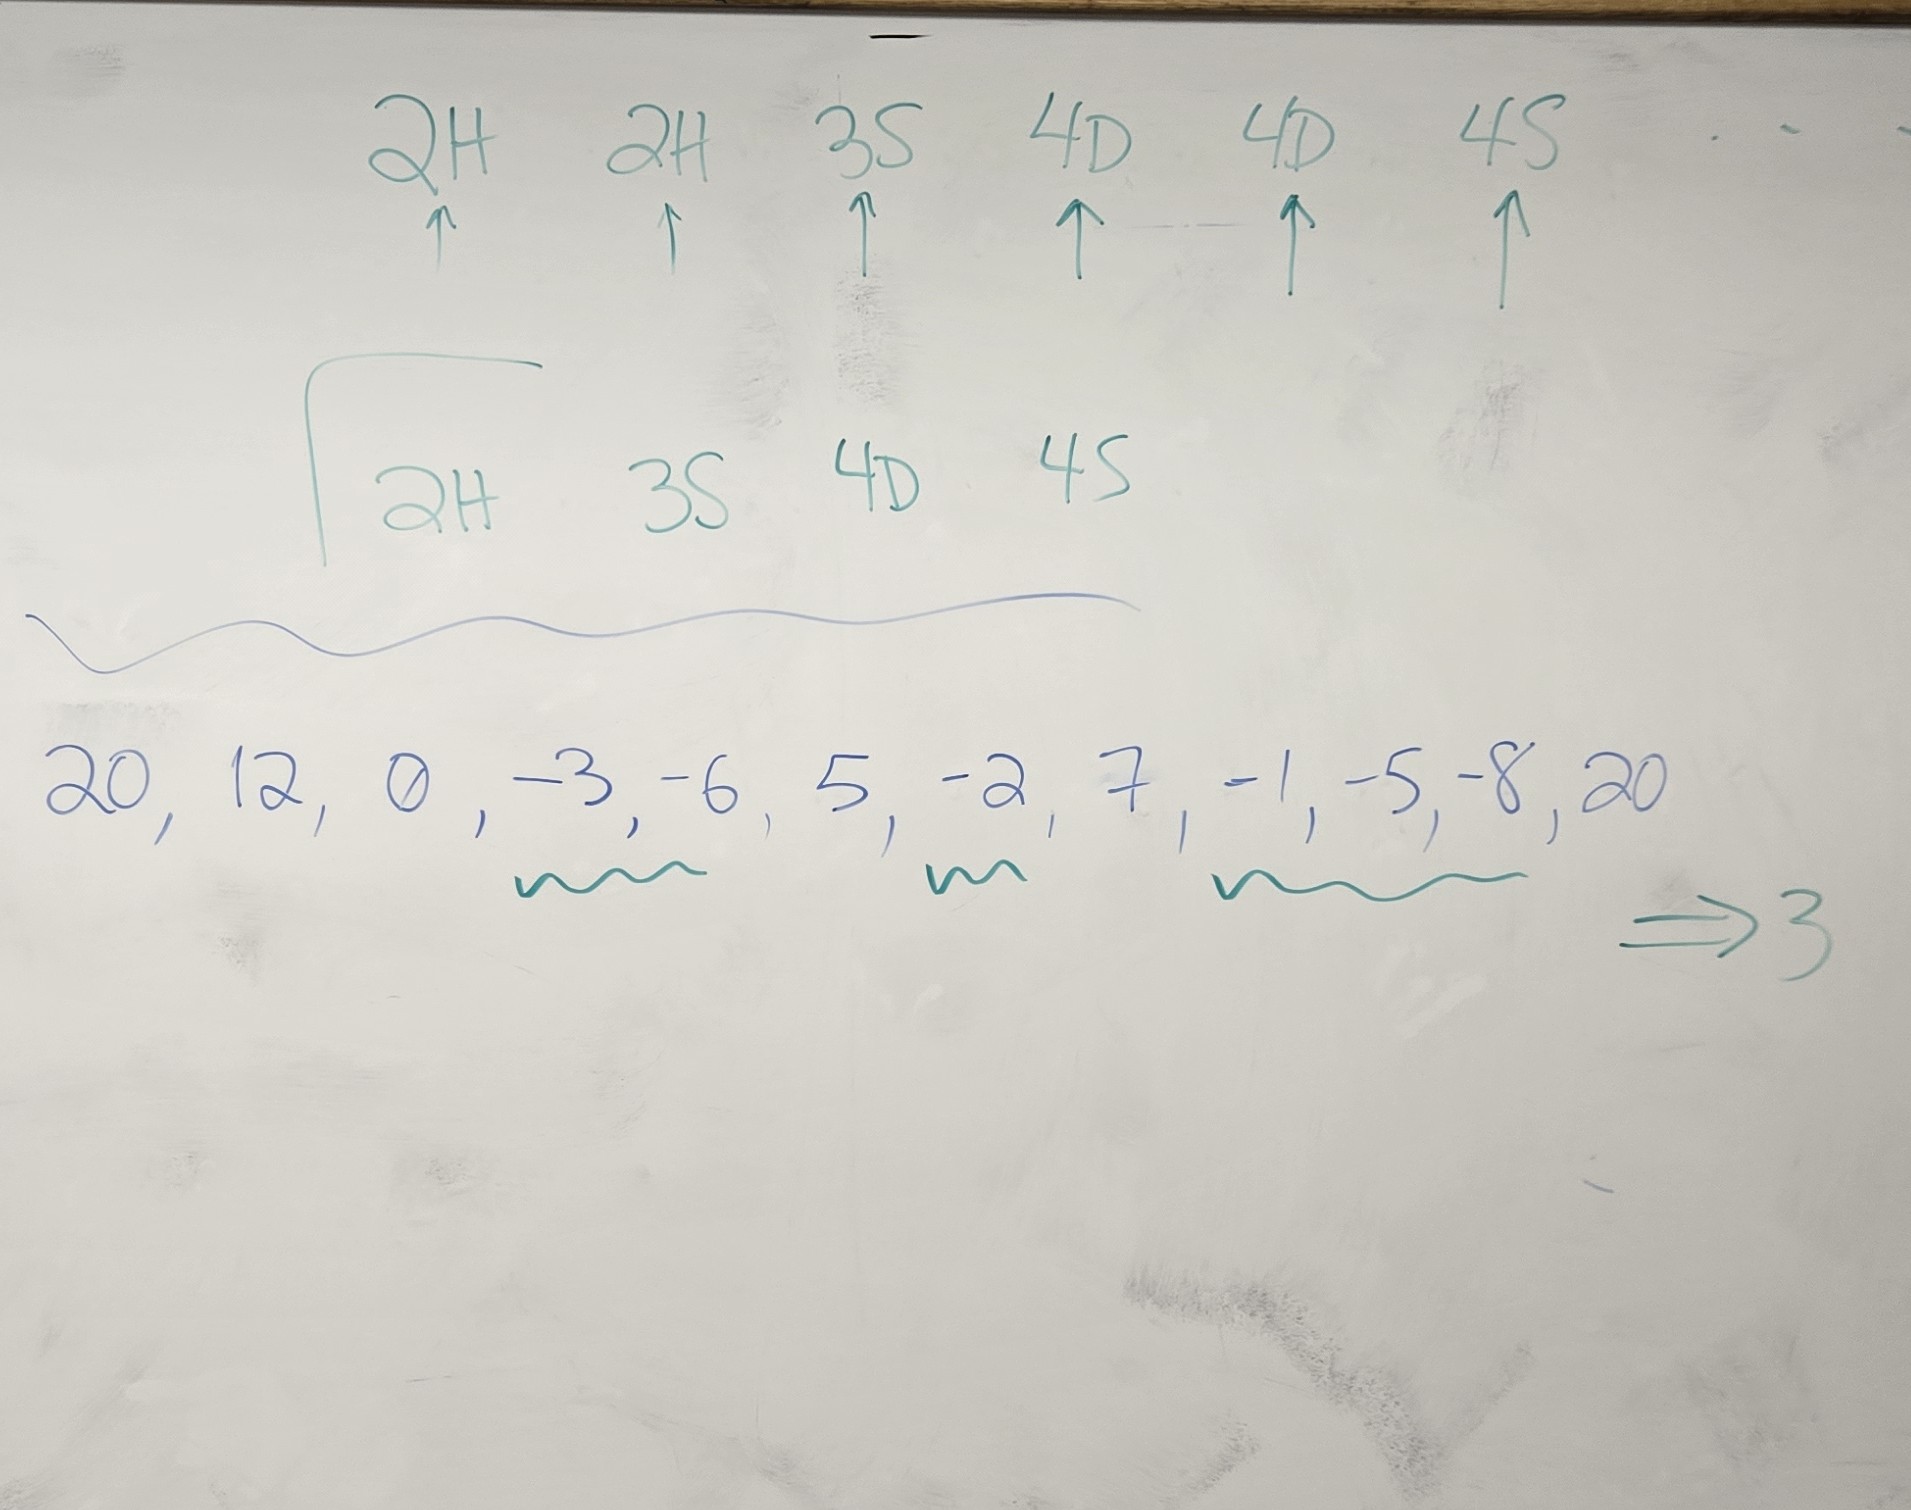 2H 2H 3S 4D 4D 4S . . .
2H 3S 4D 4S
20, 12, 0, -3, -6, 5, -2, 7, -1, -5, -8, 20
⇒ 3